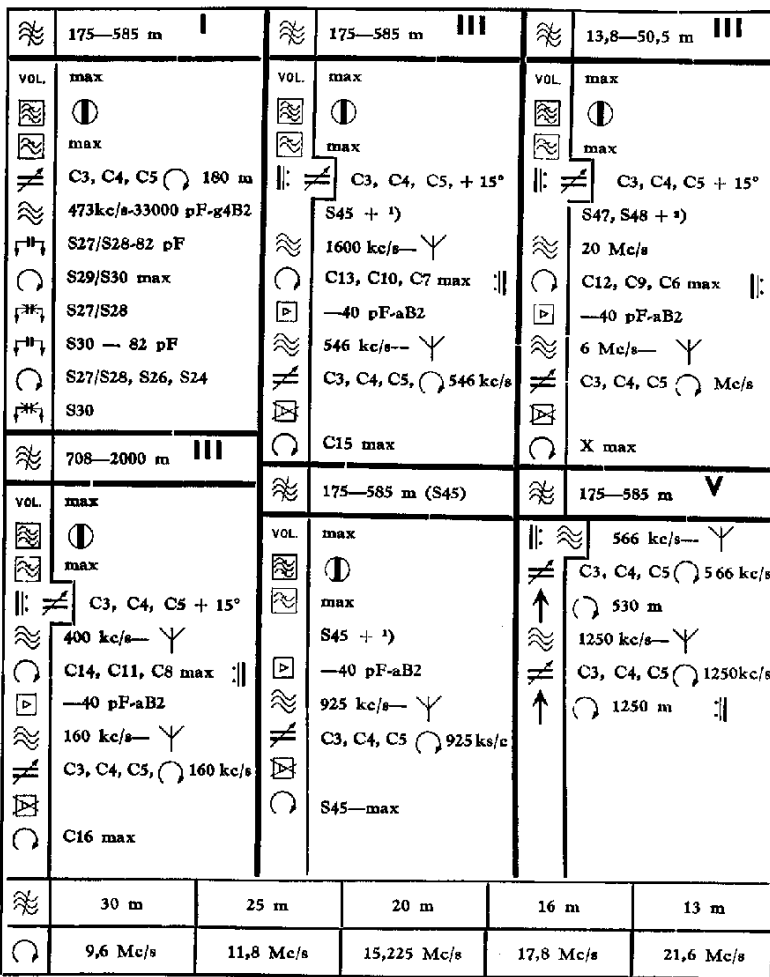 175—585 m I
VOL. max
max
C3, C4, C5 180 m
473kc/s-33000 pF-g4B2
S27/S28-82 pF
S29/S30 max
S27/S28
S30 — 82 pF
S27/S28, S26, S24
S30
708—2000 m III
VOL. max
max
C3, C4, C5 + 15°
400 kc/s—
C14, C11, C8 max
—40 pF-aB2
160 kc/s—
C3, C4, C5, 160 kc/s
C16 max
175—585 m III
VOL. max
max
C3, C4, C5, + 15°
S45 + ¹)
1600 kc/s—
C13, C10, C7 max
—40 pF-aB2
546 kc/s--
C3, C4, C5, 546 kc/s
C15 max
175—585 m (S45)
VOL. max
max
S45 + ¹)
—40 pF-aB2
925 kc/s—
C3, C4, C5 925 ks/c
S45—max
13,8—50,5 m III
VOL. max
max
C3, C4, C5 + 15°
S47, S48 + ²)
20 Mc/s
C12, C9, C6 max
—40 pF-aB2
6 Mc/s—
C3, C4, C5 Mc/s
X max
175—585 m V
566 kc/s—
C3, C4, C5 566 kc/s
530 m
1250 kc/s—
C3, C4, C5 1250kc/s
1250 m
30 m 25 m 20 m 16 m 13 m
9,6 Mc/s 11,8 Mc/s 15,225 Mc/s 17,8 Mc/s 21,6 Mc/s